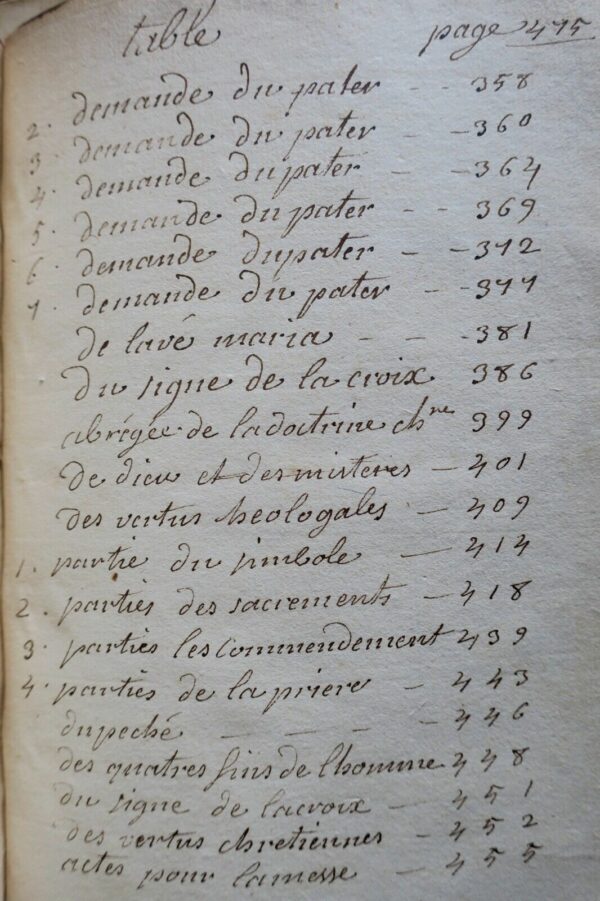 table page 475
2. demande du pater -- 358
3 demande du pater -- 360
4. demande du pater -- 364
5. demande du pater -- 369
6. demande du pater -- 372
7. demande du pater -- 377
de lavé maria --- 381
du signe de la croix 386
abrégée de la doctrine chre 399
de dieu et des misteres - 401
des vertus theologales - 409
1. partie du simbole -- 414
2. parties des sacrements - 418
3. parties les commendement 439
4. parties de la priere - 443
du peché ---- 446
des quatres fins de lhomme 448
du signe de la croix - 451
des vertus chretiennes - 452
actes pour la messe - 455